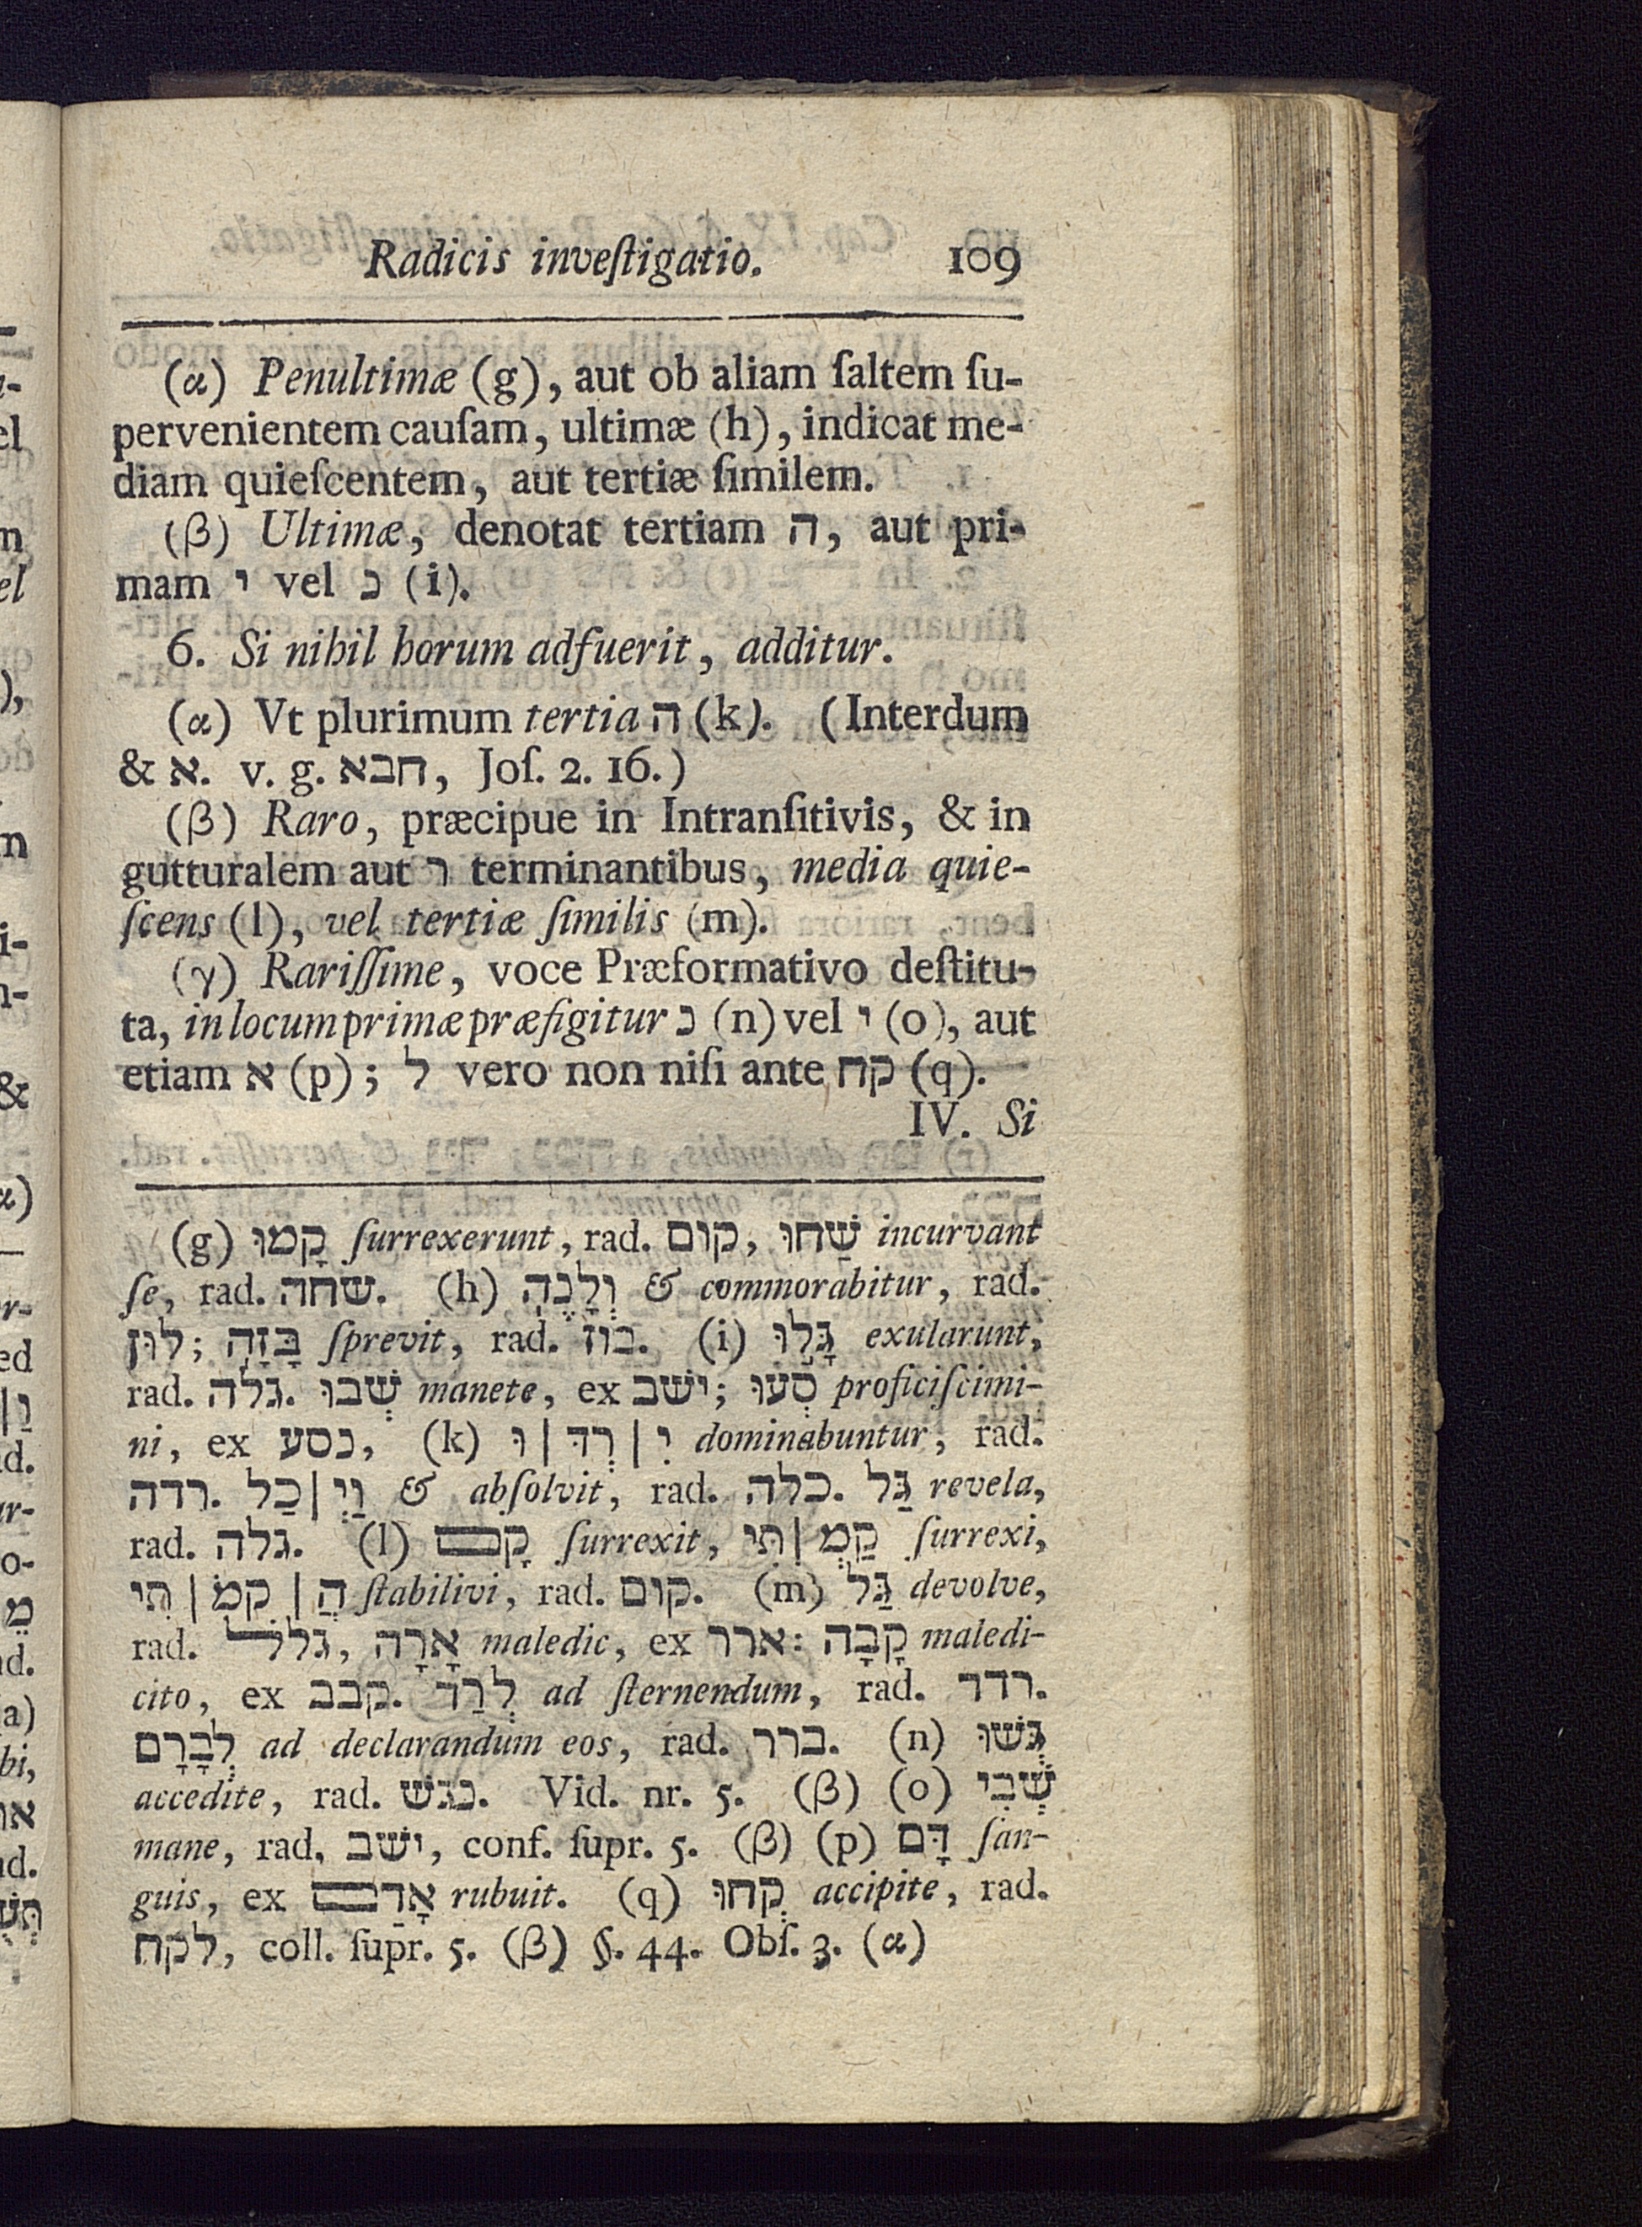 Radicis inveſtigatio. 109
(α) Penultimæ (g), aut ob aliam ſaltem ſu-
pervenientem cauſam, ultimæ (h), indicat me-
diam quieſcentem, aut tertiæ ſimilem.
(β) Ultimæ, denotat tertiam ה, aut pri-
mam י vel נ (i).
6. Si nihil horum adfuerit, additur.
(α) Vt plurimum tertia ה (k). (Interdum
& א. v. g. חבא, Joſ. 2. 16.)
(β) Raro, præcipue in Intranſitivis, & in
gutturalem aut ר terminantibus, media quie-
ſcens (l), vel tertiæ ſimilis (m).
(γ) Rariſſime, voce Præformativo deſtitu-
ta, in locum primæ præfigitur נ (n) vel י (o), aut
etiam א (p); ל vero non niſi ante קח (q).
IV. Si
(g) קָמוּ ſurrexerunt, rad. קום, שַׁחוּ incurvant
ſe, rad. שחה. (h) וְלָנֶה & commorabitur, rad.
לון; בָּזָה ſprevit, rad. בוז. (i) גָּלוּ exularunt,
rad. גלה. שְׁבוּ manete, ex ישׁב; סְעוּ proficiſcimi-
ni, ex נסע, (k) יִ|רְדּ|וּ dominabuntur, rad.
רדה. וַיְ|כַל & abſolvit, rad. כלה. גַּל revela,
rad. גלה. (l) קָם ſurrexit, קַמְ|תִּי ſurrexi,
הֲ|קִמֹ|תִי ſtabilivi, rad. קום. (m) גַּל devolve,
rad. גלל, אָרָה maledic, ex ארר: קָבָה maledi-
cito, ex קבב. לְרַד ad ſternendum, rad. רדד.
לְבָרָם ad declarandum eos, rad. ברר. (n) גְּשׁוּ
accedite, rad. נגשׁ. Vid. nr. 5. (β) (o) שְׁבִי
mane, rad. ישׁב, conf. ſupr. 5. (β) (p) דָּם ſan-
guis, ex אָדַם rubuit. (q) קְחוּ accipite, rad.
לקח, coll. ſupr. 5. (β) §. 44. Obſ. 3. (α)